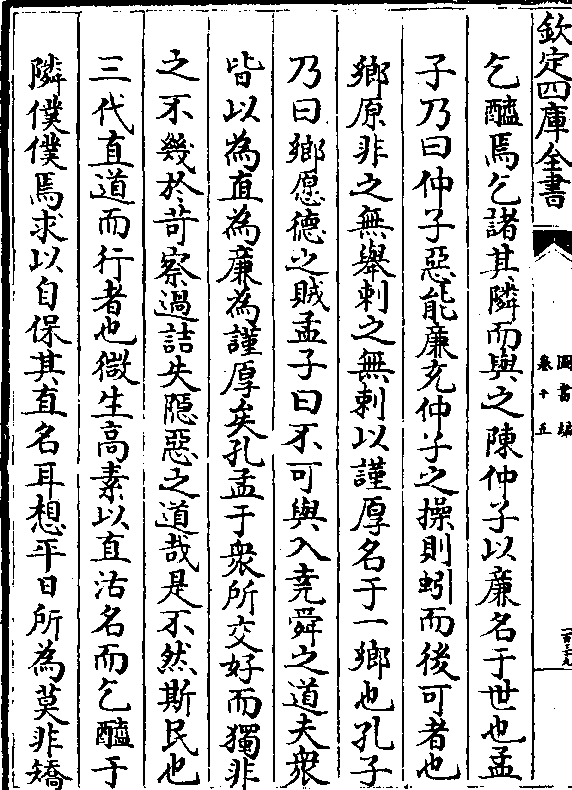 欽定四庫全書
圖書編
卷十五
乞醯焉乞諸其隣而與之陳仲子以廉名于世也孟
子乃曰仲子惡能廉充仲子之操則蚓而後可者也
鄉原非之無舉刺之無刺以謹厚名于一鄉也孔子
乃曰鄉愿德之賊孟子曰不可與入堯舜之道夫衆
皆以為直為廉為謹厚矣孔孟于衆所交好而獨非
之不幾於苛察過詰失隠惡之道哉是不然斯民也
三代直道而行者也微生高素以直沽名而乞醯于
隣僕僕焉求以自保其直名耳想平日所為莫非矯